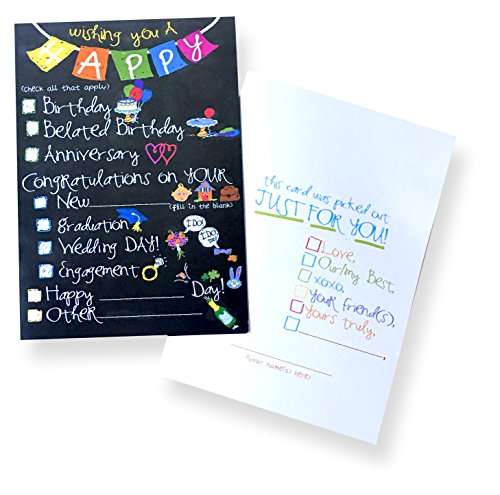 wishing you A
HAPPY
(check all that apply)
Birthday
Belated Birthday
Anniversary
Congratulations on YOUR
New
(fill in the blank)
graduation
I DO!
Wedding DAY!
I DO too!
Engagement
Happy Day!
Other
this card was picked out
JUST FOR YOU!
Love,
Our/my Best,
xoxo,
Your friend(s),
Yours truly,
(your name(s) here)